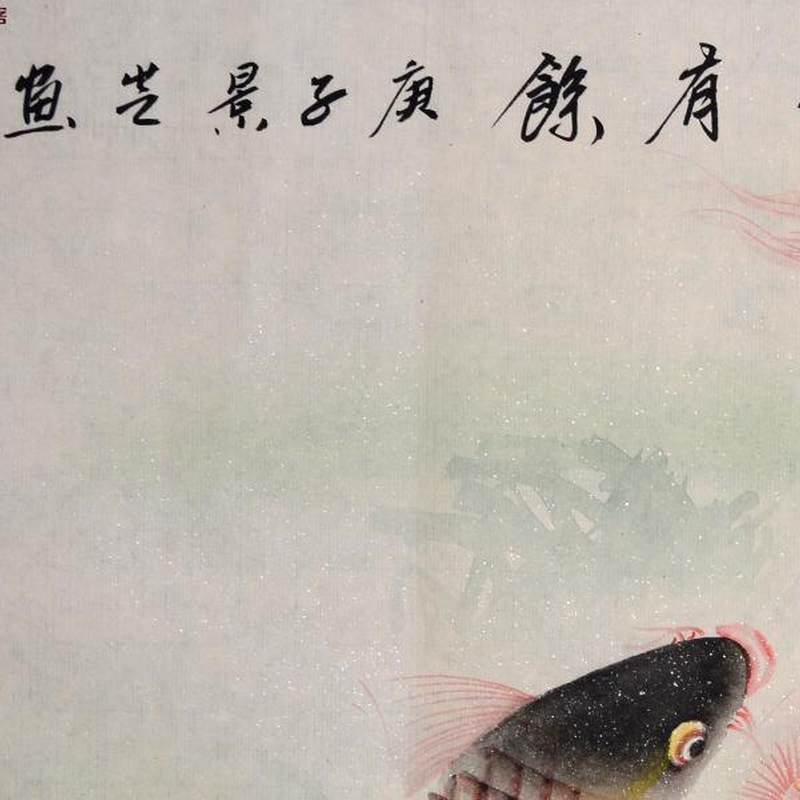 有餘 庚子景 畫